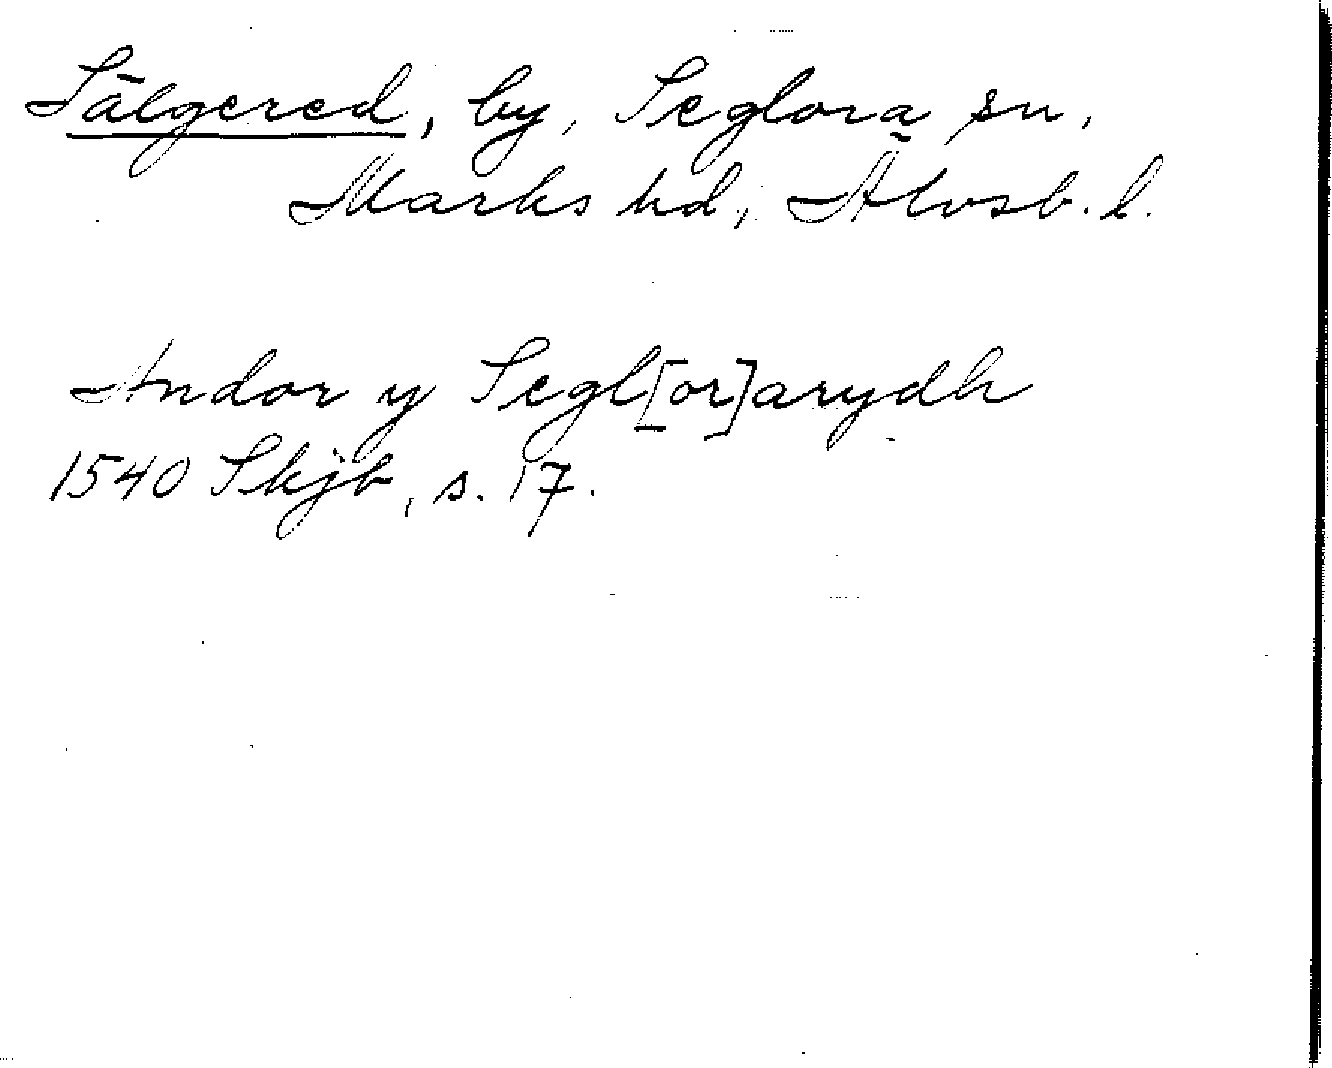 Sälgered, by, Seglora sn,
Marks hd, Älvsb. l.
Andor y Segl[or]arydh
1540 Skjb, s. 17.